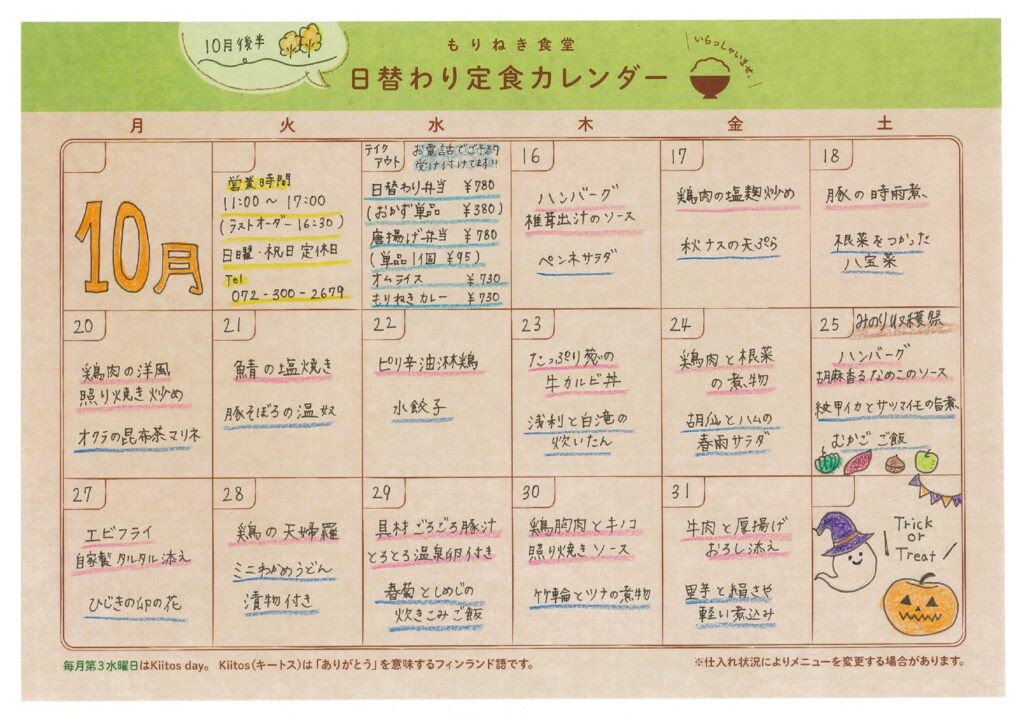 10月後半
もりねき食堂
日替わり定食カレンダー
いらっしゃいませ。
月 火 水 木 金 土
10月
営業時間
11:00 〜 17:00
(ラストオーダー 16:30)
日曜・祝日 定休日
Tel
072-300-2679
テイク
アウト
お電話でご予約
受け付けてます!!
日替わり弁当 ¥780
(おかず単品 ¥380)
唐揚げ弁当 ¥780
(単品1個 ¥95)
オムライス ¥730
もりねきカレー ¥730
16
ハンバーグ
椎茸出汁のソース
ペンネサラダ
17
鶏肉の塩麹炒め
秋ナスの天ぷら
18
豚の時雨煮、
根菜をつかった
八宝菜
20
鶏肉の洋風
照り焼き炒め
オクラの昆布茶マリネ
21
鯖の塩焼き
豚そぼろの温奴
22
ピリ辛油淋鶏
水餃子
23
たっぷり葱の
牛カルビ丼
浅利と白滝の
炊いたん
24
鶏肉と根菜
の煮物
胡瓜とハムの
春雨サラダ
25 みのり収穫祭
ハンバーグ
胡麻香るなめこのソース
紋甲イカとサツマイモの旨煮、
むかごご飯
27
エビフライ
自家製タルタル添え
ひじきの卯の花
28
鶏の天婦羅
ミニわかめうどん
漬物付き
29
具材ごろごろ豚汁
とろとろ温泉卵付き
春菊としめじの
炊きこみご飯
30
鶏胸肉とキノコ
照り焼きソース
竹輪とツナの煮物
31
牛肉と厚揚げ
おろし添え
里芋と絹さや
軽い煮込み
Trick
or
Treat
毎月第3水曜日はKiitos day。 Kiitos(キートス)は「ありがとう」を意味するフィンランド語です。
※仕入れ状況によりメニューを変更する場合があります。